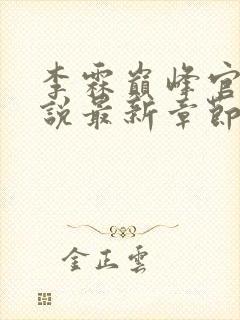 李霖巔峰官
說最新章節
金正雲